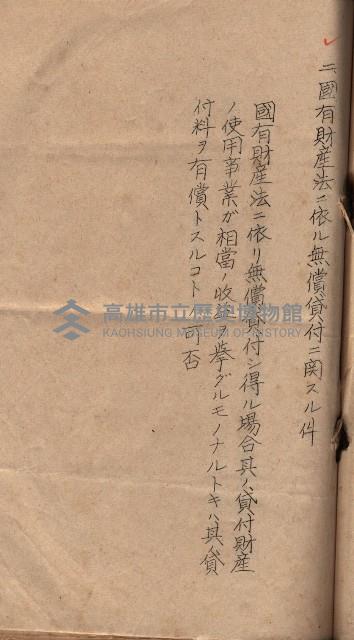 二、國有財産法ニ依ル無償貸付ニ関スル件
國有財産法ニ依リ無償貸付シ得ル場合其ノ貸付財産
ノ使用事業ガ相當ノ收益ヲ擧グルモノナルトキハ其ノ貸
付料ヲ有償トスルコトノ可否
高雄市立歷史博物館
KAOHSIUNG MUSEUM OF HISTORY